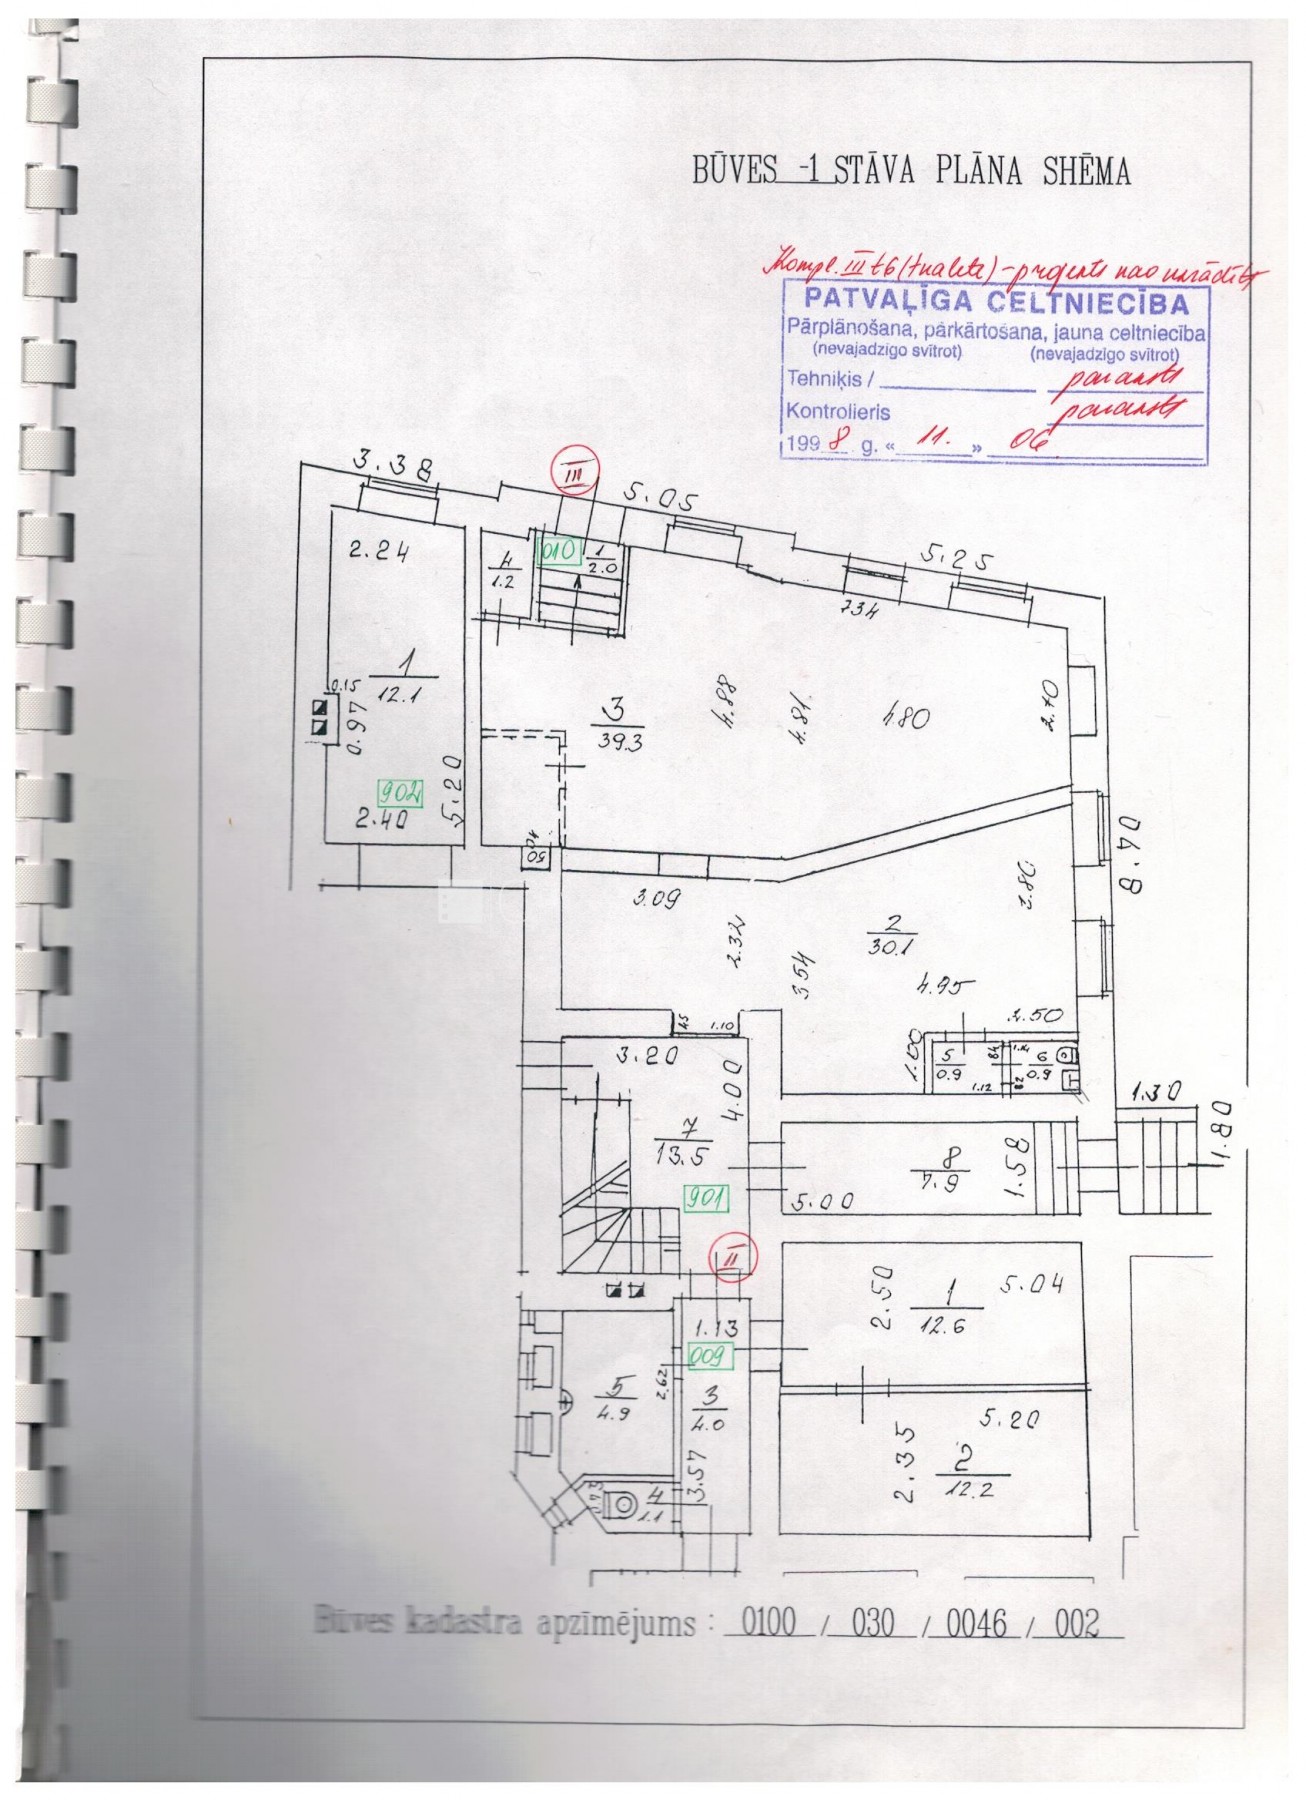 BŪVES -1 STĀVA PLĀNA SHĒMA
Kompl. III t6 (tualete) - projekts nav uzrādīts
PATVAĻĪGA CELTNIECĪBA
Pārplānošana, pārkārtošana, jauna celtniecība
(nevajadzīgo svītrot) (nevajadzīgo svītrot)
Tehniķis / paraksts
Kontrolieris paraksts
1998 g. « 11. » 06
3.38
III
5.05
5.25
2.24
4
1.2
010
1
2.0
734
1
12.1
0.15
0.97
902
2.40
5.20
3
39.3
4.88
4.81
4.80
2.70
40
50
3.09
2.32
3.54
2
30.1
4.95
3.80
8.70
2.50
45
1.10
3.20
4.00
1.00
5
0.9
84
1.12
1.14
82
6
0.9
7
13.5
901
8
7.9
1.58
5.00
1.30
1.80
II
1.13
009
5
4.9
2.62
3
4.0
3.57
0.73
4
1.1
2.50
1
12.6
5.04
2.35
2
12.2
5.20
Būves kadastra apzīmējums : 0100 / 030 / 0046 / 002